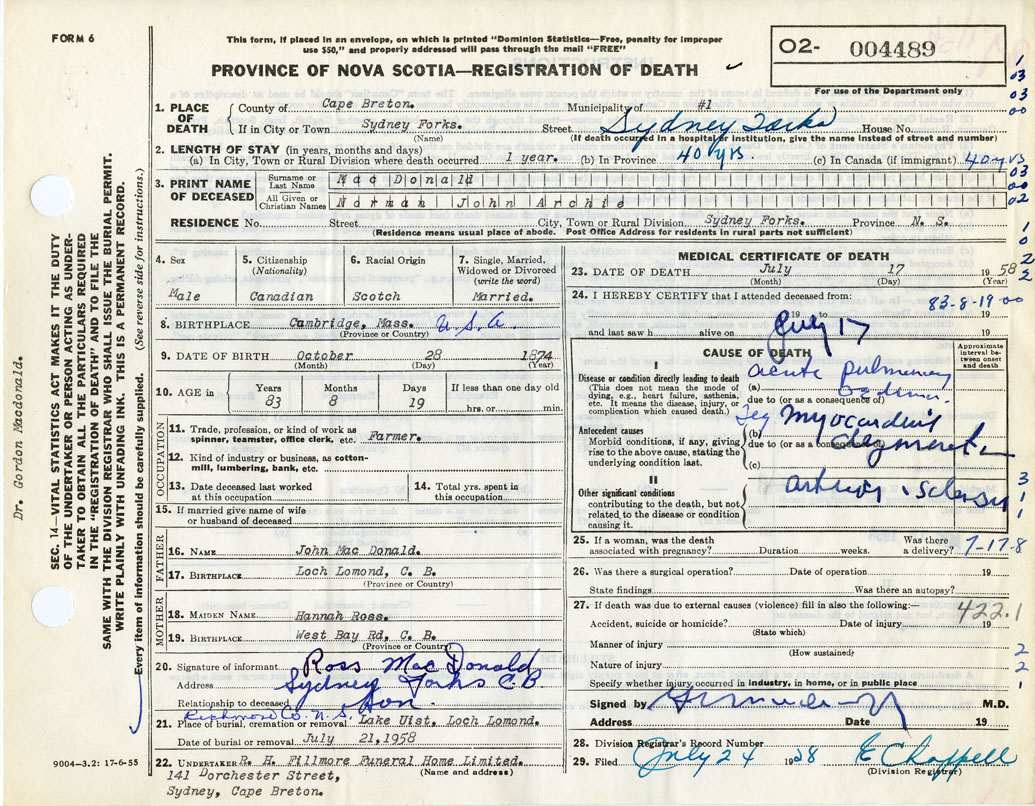 FORM 6
This form, if placed in an envelope, on which is printed "Dominion Statistics—Free, penalty for improper
use $50," and properly addressed will pass through the mail "FREE"
PROVINCE OF NOVA SCOTIA—REGISTRATION OF DEATH
02- 004489
For use of the Department only
1. PLACE OF DEATH
County of Cape Breton. Municipality of #1
If in City or Town Sydney Forks. Street Sydney Forks House No.
(Name) (If death occurred in a hospital or institution, give the name instead of street and number)
2. LENGTH OF STAY (in years, months and days)
(a) In City, Town or Rural Division where death occurred 1 year. (b) In Province 40 yrs. (c) In Canada (if immigrant) 40 yrs
3. PRINT NAME OF DECEASED
Surname or Last Name Mac Donald
All Given or Christian Names Norman John Archie
RESIDENCE No. Street City, Town or Rural Division Sydney Forks. Province N. S.
(Residence means usual place of abode. Post Office Address for residents in rural parts not sufficient)
4. Sex Male
5. Citizenship (Nationality) Canadian
6. Racial Origin Scotch
7. Single, Married, Widowed or Divorced (write the word) Married.
8. BIRTHPLACE Cambridge, Mass. U.S.A.
(Province or Country)
9. DATE OF BIRTH October 28 1874
(Month) (Day) (Year)
10. AGE in Years 83 Months 8 Days 19 If less than one day old hrs. or min.
OCCUPATION
11. Trade, profession or kind of work as
spinner, teamster, office clerk, etc. Farmer.
12. Kind of industry or business, as cotton-
mill, lumbering, bank, etc.
13. Date deceased last worked
at this occupation
14. Total yrs. spent in
this occupation
15. If married give name of wife
or husband of deceased
FATHER
16. NAME John Mac Donald.
17. BIRTHPLACE Loch Lomond, C. B.
(Province or Country)
MOTHER
18. MAIDEN NAME Hannah Ross.
19. BIRTHPLACE West Bay Rd, C. B.
(Province or Country)
20. Signature of informant Ross MacDonald
Address Sydney Forks C B
Relationship to deceased Son.
Richmond Co. N.S.
21. Place of burial, cremation or removal Lake Uist, Loch Lomond.
Date of burial or removal July 21,1958
22. UNDERTAKER R. H. Fillmore Funeral Home Limited.
(Name and address)
141 Dorchester Street,
Sydney, Cape Breton.
9004—3.2: 17-6-55
MEDICAL CERTIFICATE OF DEATH
23. DATE OF DEATH July 17 1958
(Month) (Day) (Year)
24. I HEREBY CERTIFY that I attended deceased from:
83-8-19-00
19 to 19
and last saw h alive on July 17 19
CAUSE OF DEATH
Approximate interval between onset and death
I
Disease or condition directly leading to death
(This does not mean the mode of
dying, e.g., heart failure, asthenia,
etc. It means the disease, injury, or
complication which caused death.)
(a) acute pulmonary
due to (or as a consequence of)
Antecedent causes
Morbid conditions, if any, giving
rise to the above cause, stating the
underlying condition last.
(b)
due to (or as a consequence of)
(c)
II
Other significant conditions
contributing to the death, but not
related to the disease or condition
causing it.
25. If a woman, was the death
associated with pregnancy? Duration weeks. Was there
a delivery? 7-17-8
26. Was there a surgical operation? Date of operation 19
State findings Was there an autopsy?
27. If death was due to external causes (violence) fill in also the following:—
422.1
Accident, suicide or homicide? Date of injury 19
(State which)
Manner of injury
(How sustained)
Nature of injury
Specify whether injury occurred in industry, in home, or in public place
Signed by M.D.
Address Date 19
28. Division Registrar's Record Number
29. Filed July 24 1958 E Chappell
(Division Registrar)
1
03
03
00
03
00
02
1
0
2
2
3
1
1
2
2
1
Dr. Gordon Macdonald.
SEC. 14—VITAL STATISTICS ACT MAKES IT THE DUTY
OF THE UNDERTAKER OR PERSON ACTING AS UNDER-
TAKER TO OBTAIN ALL THE PARTICULARS REQUIRED
IN THE "REGISTRATION OF DEATH" AND TO FILE THE
SAME WITH THE DIVISION REGISTRAR WHO SHALL ISSUE THE BURIAL PERMIT.
WRITE PLAINLY WITH UNFADING INK. THIS IS A PERMANENT RECORD.
Every item of information should be carefully supplied. (See reverse side for instructions.)